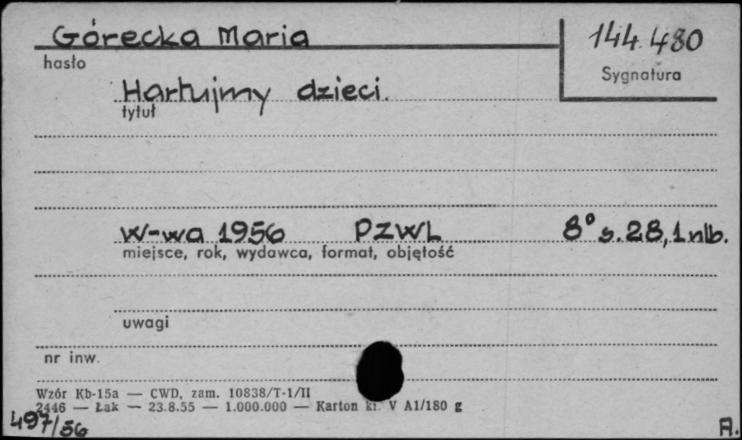 Górecka Maria
144.480
hasło
Sygnatura
Hartujmy dzieci.
tytuł
W-wa 1956 PZWL 8° s. 28, 1 nlb.
miejsce, rok, wydawca, format, objętość
uwagi
nr inw.
Wzór Kb-15a — CWD, zam. 10838/T-1/II
2446 — Łak — 23.8.55 — 1.000.000 — Karton kl. V A1/180 g
497/56
A.